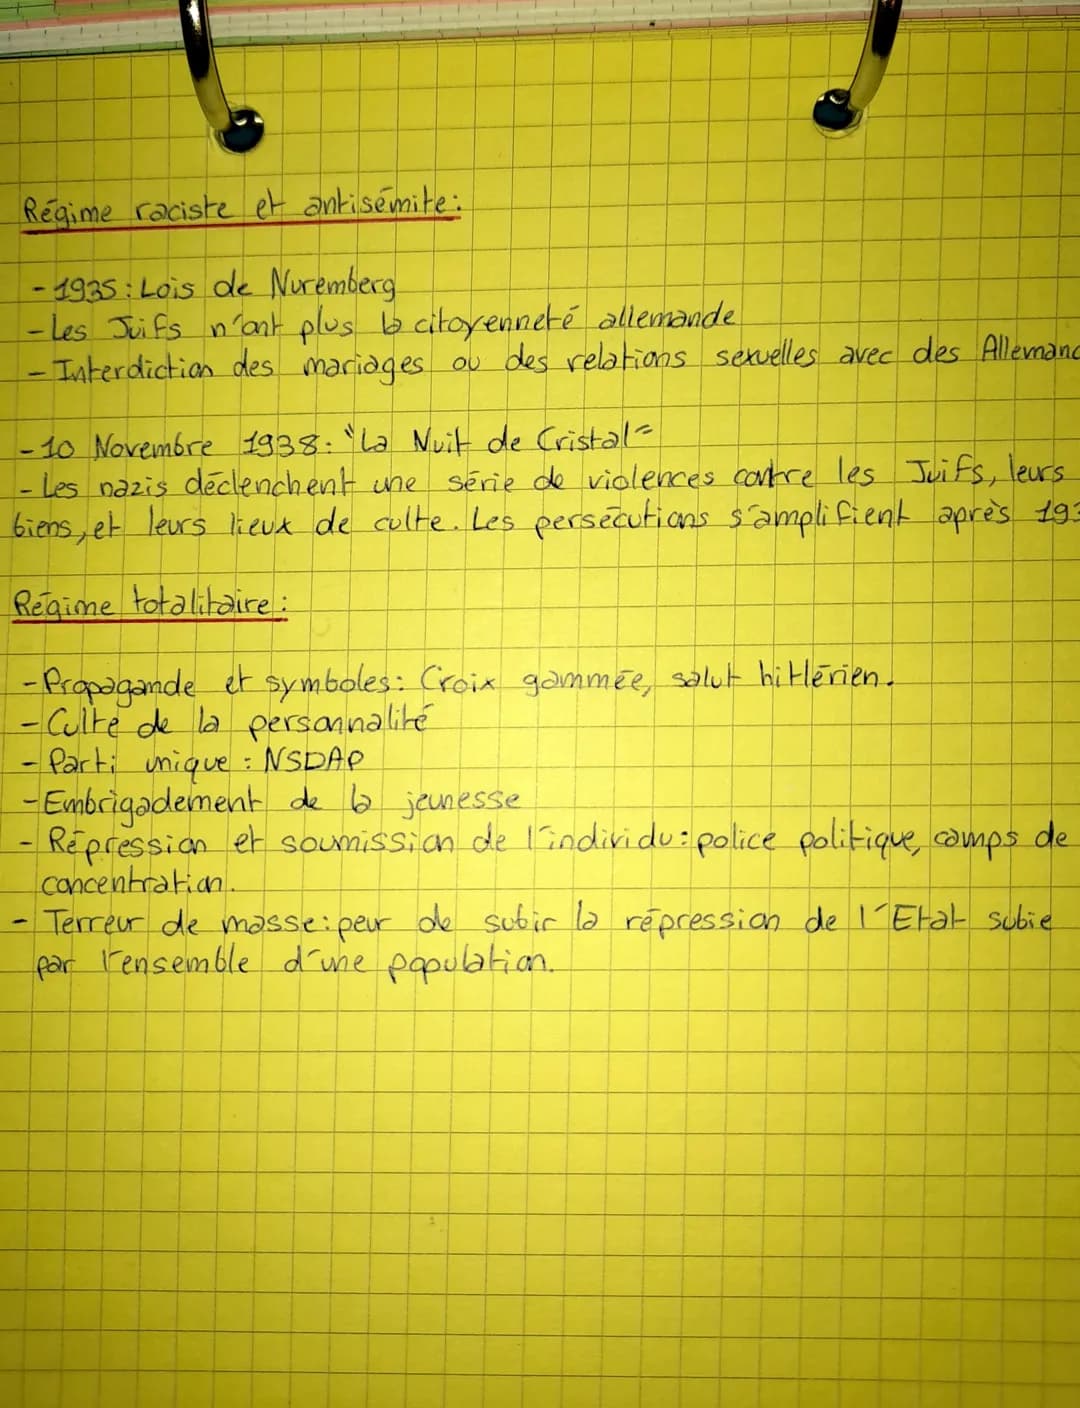 Régime raciste et antisémite:
- 1935: Lois de Nuremberg
- Les Juifs n'ont plus la citoyenneté allemande
- Interdiction des mariages ou des relations sexuelles avec des Allemand
- 10 Novembre 1938: "La Nuit de Cristal"
- Les nazis déclenchent une série de violences contre les Juifs, leurs
biens, et leurs lieux de culte. Les persécutions s'amplifient après 193
Régime totalitaire:
- Propagande et symboles: Croix gammée, salut hitlérien.
- Culte de la personnalité
- Parti unique: NSDAP
- Embrigadement de la jeunesse
- Répression et soumission de l'individu: police politique, camps de
concentration.
- Terreur de masse: peur de subir la répression de l'Etat subie
par l'ensemble d'une population.